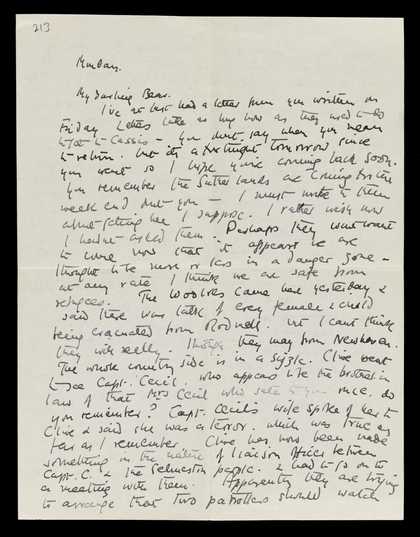 213
Monday.
My Darling Bear.
I've at last had a letter from you written on
Friday. Letters take as long now as they used to do
to get to Cassis – you don't say when you mean
to return. but it's a fortnight tomorrow since
you went so I hope you're coming back soon.
You remember the Sutherlands are coming for the
week end don't you – I must write to them
about fetching her I suppose. I rather wish now
I hadn't asked them. Perhaps they won't want
to come now that it appears we are
thought to be more or less in a danger zone –
at any rate I think we are safe from
refugees. The Woolves came here yesterday &
said there was talk of every female & child
being evacuated from Rodmell. but I can't think
they will really. though they may from Newhaven.
The whole country side is in a sizzle. Clive went
to see Capt. Cecil. who appears to be the brother in
law of that Mrs Cecil who sat to you once. do
you remember? Capt. Cecil's wife spoke of her to
Clive & said she was a terror. which was true as
far as I remember. Clive has now been made
something in the nature of liaison officer between
Capt. C. & the Selmeston people. & had to go on to
a meeting with them. Apparently they are trying
to arrange that two patrollers should watch